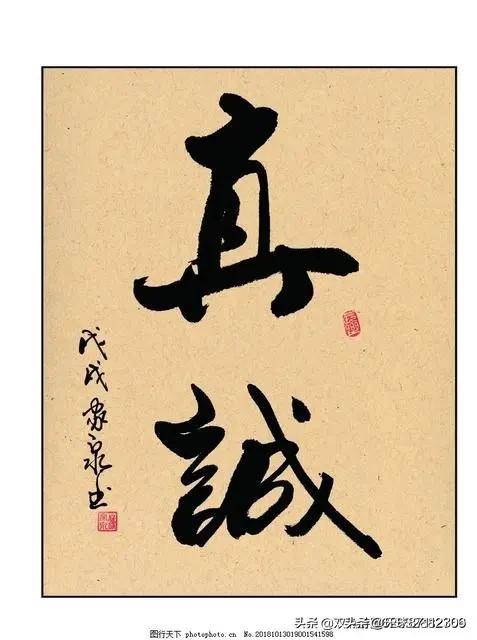 真
誠
戊戌 泉书
头条
图行天下 photophoto.cn No.20181013019001541598